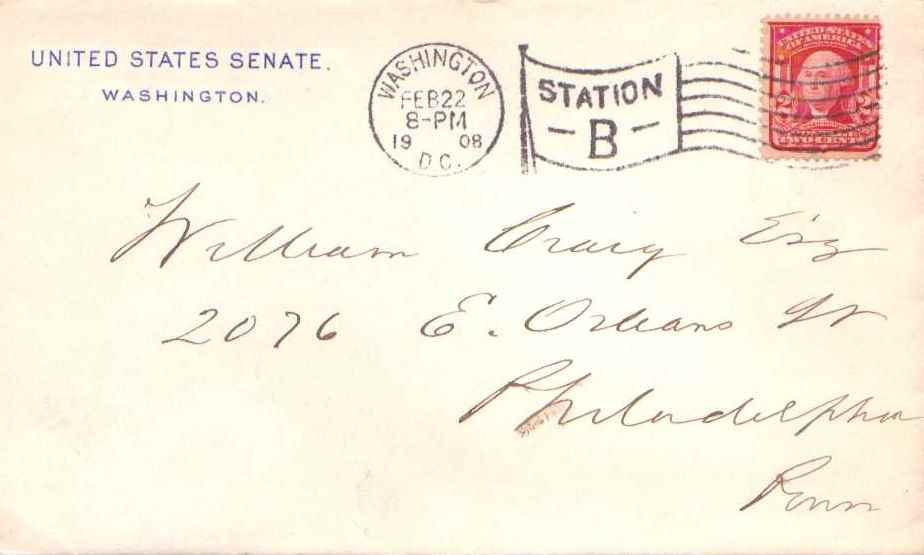 UNITED STATES SENATE.
WASHINGTON.
WASHINGTON
FEB 22
8-PM
1908
D.C.
STATION
- B -
UNITED STATES
OF AMERICA
2 2
TWO CENTS
William Craig Esq
2076 E. Orleans St
Philadelphia
Penn